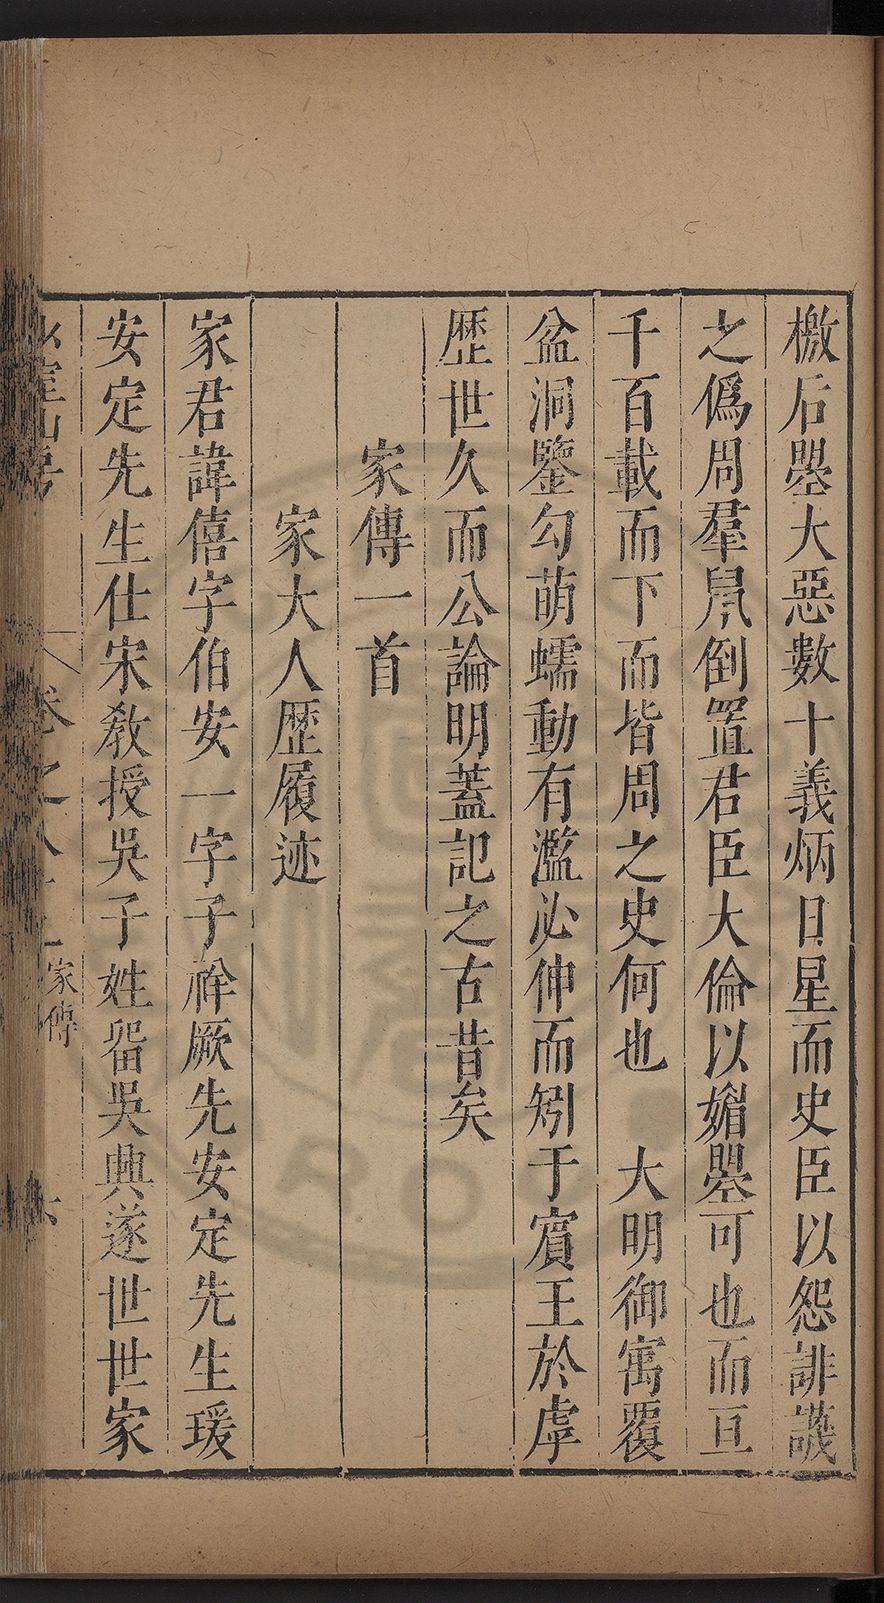 檄后曌大惡數十義炳日星而史臣以怨誹譏
之僞周羣鼠倒置君臣大倫以媚曌可也而亘
千百載而下而皆周之史何也　大明御寓覆
盆洞鑒勾萌蠕動有濫必伸而矧于賓王於虖
歷世久而公論明蓋記之古昔矣
家傳一首
家大人歷履迹
家君諱僖字伯安一字子祥厥先安定先生瑗
安定先生仕宋教授吳子姓畱吳興遂世世家
室山房
卷之八十
家傳
六